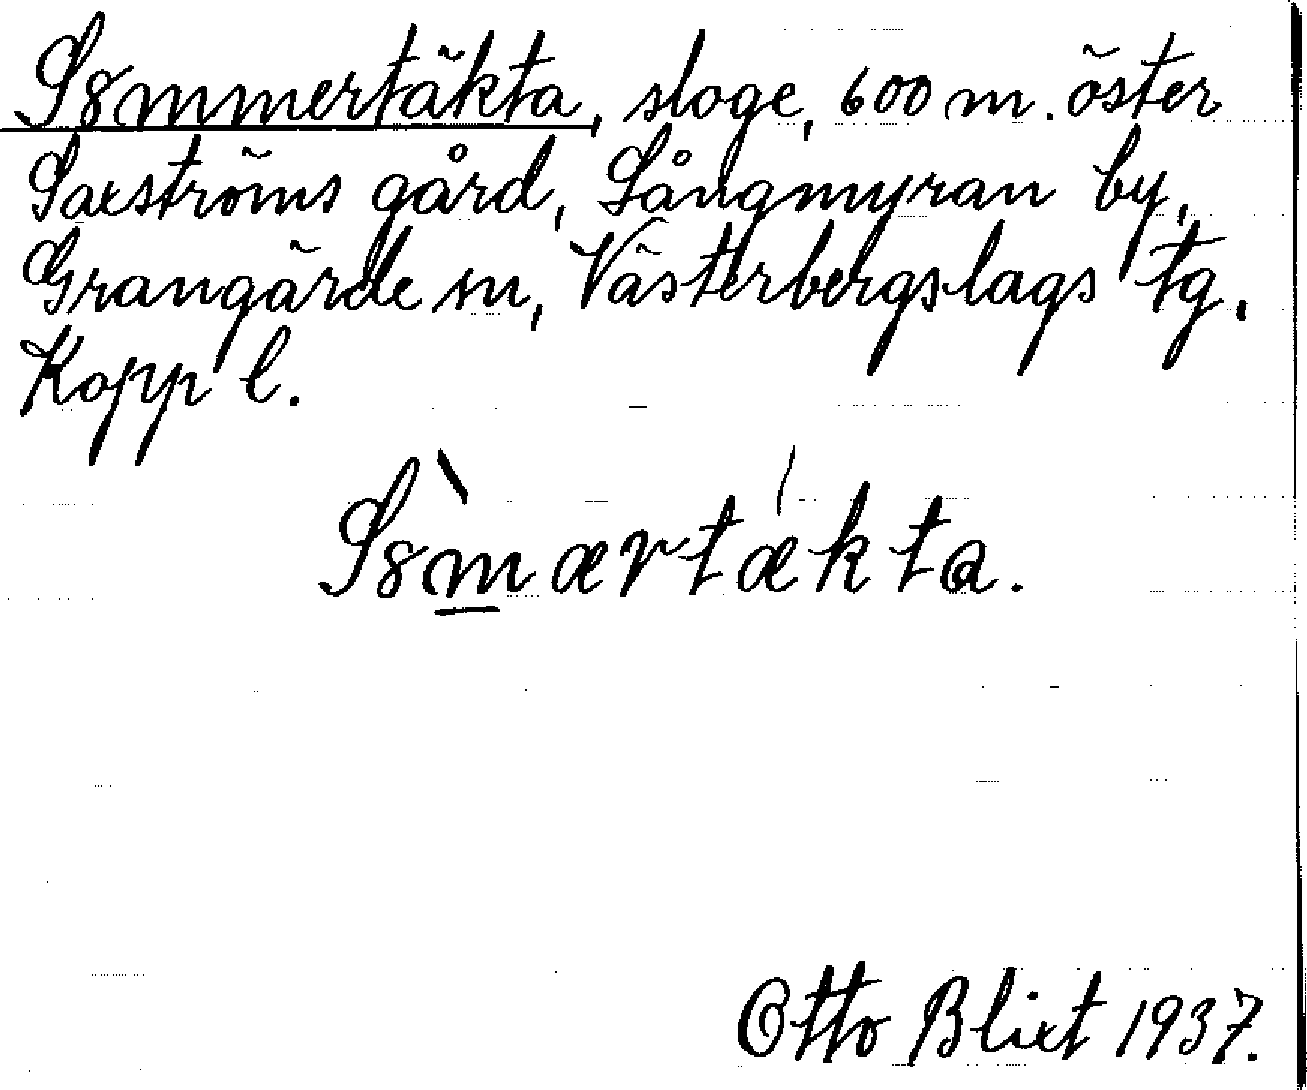 Sommertäkta, sloge, 600 m. öster
Saxströms gård, Långmyran by,
Grangärde sn, Västerbergslags tg.
Kopp l.
S8mærtækta.
Otto Blixt 1937.